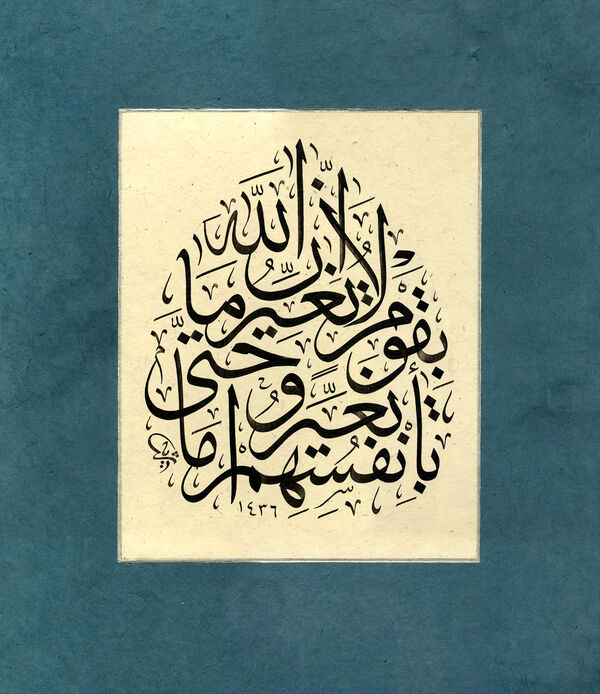 إِنَّ اللَّهَ لَا يُغَيِّرُ مَا
بِقَوْمٍ حَتَّىٰ يُغَيِّرُوا
مَا بِأَنْفُسِهِمْ
١٤٣٦